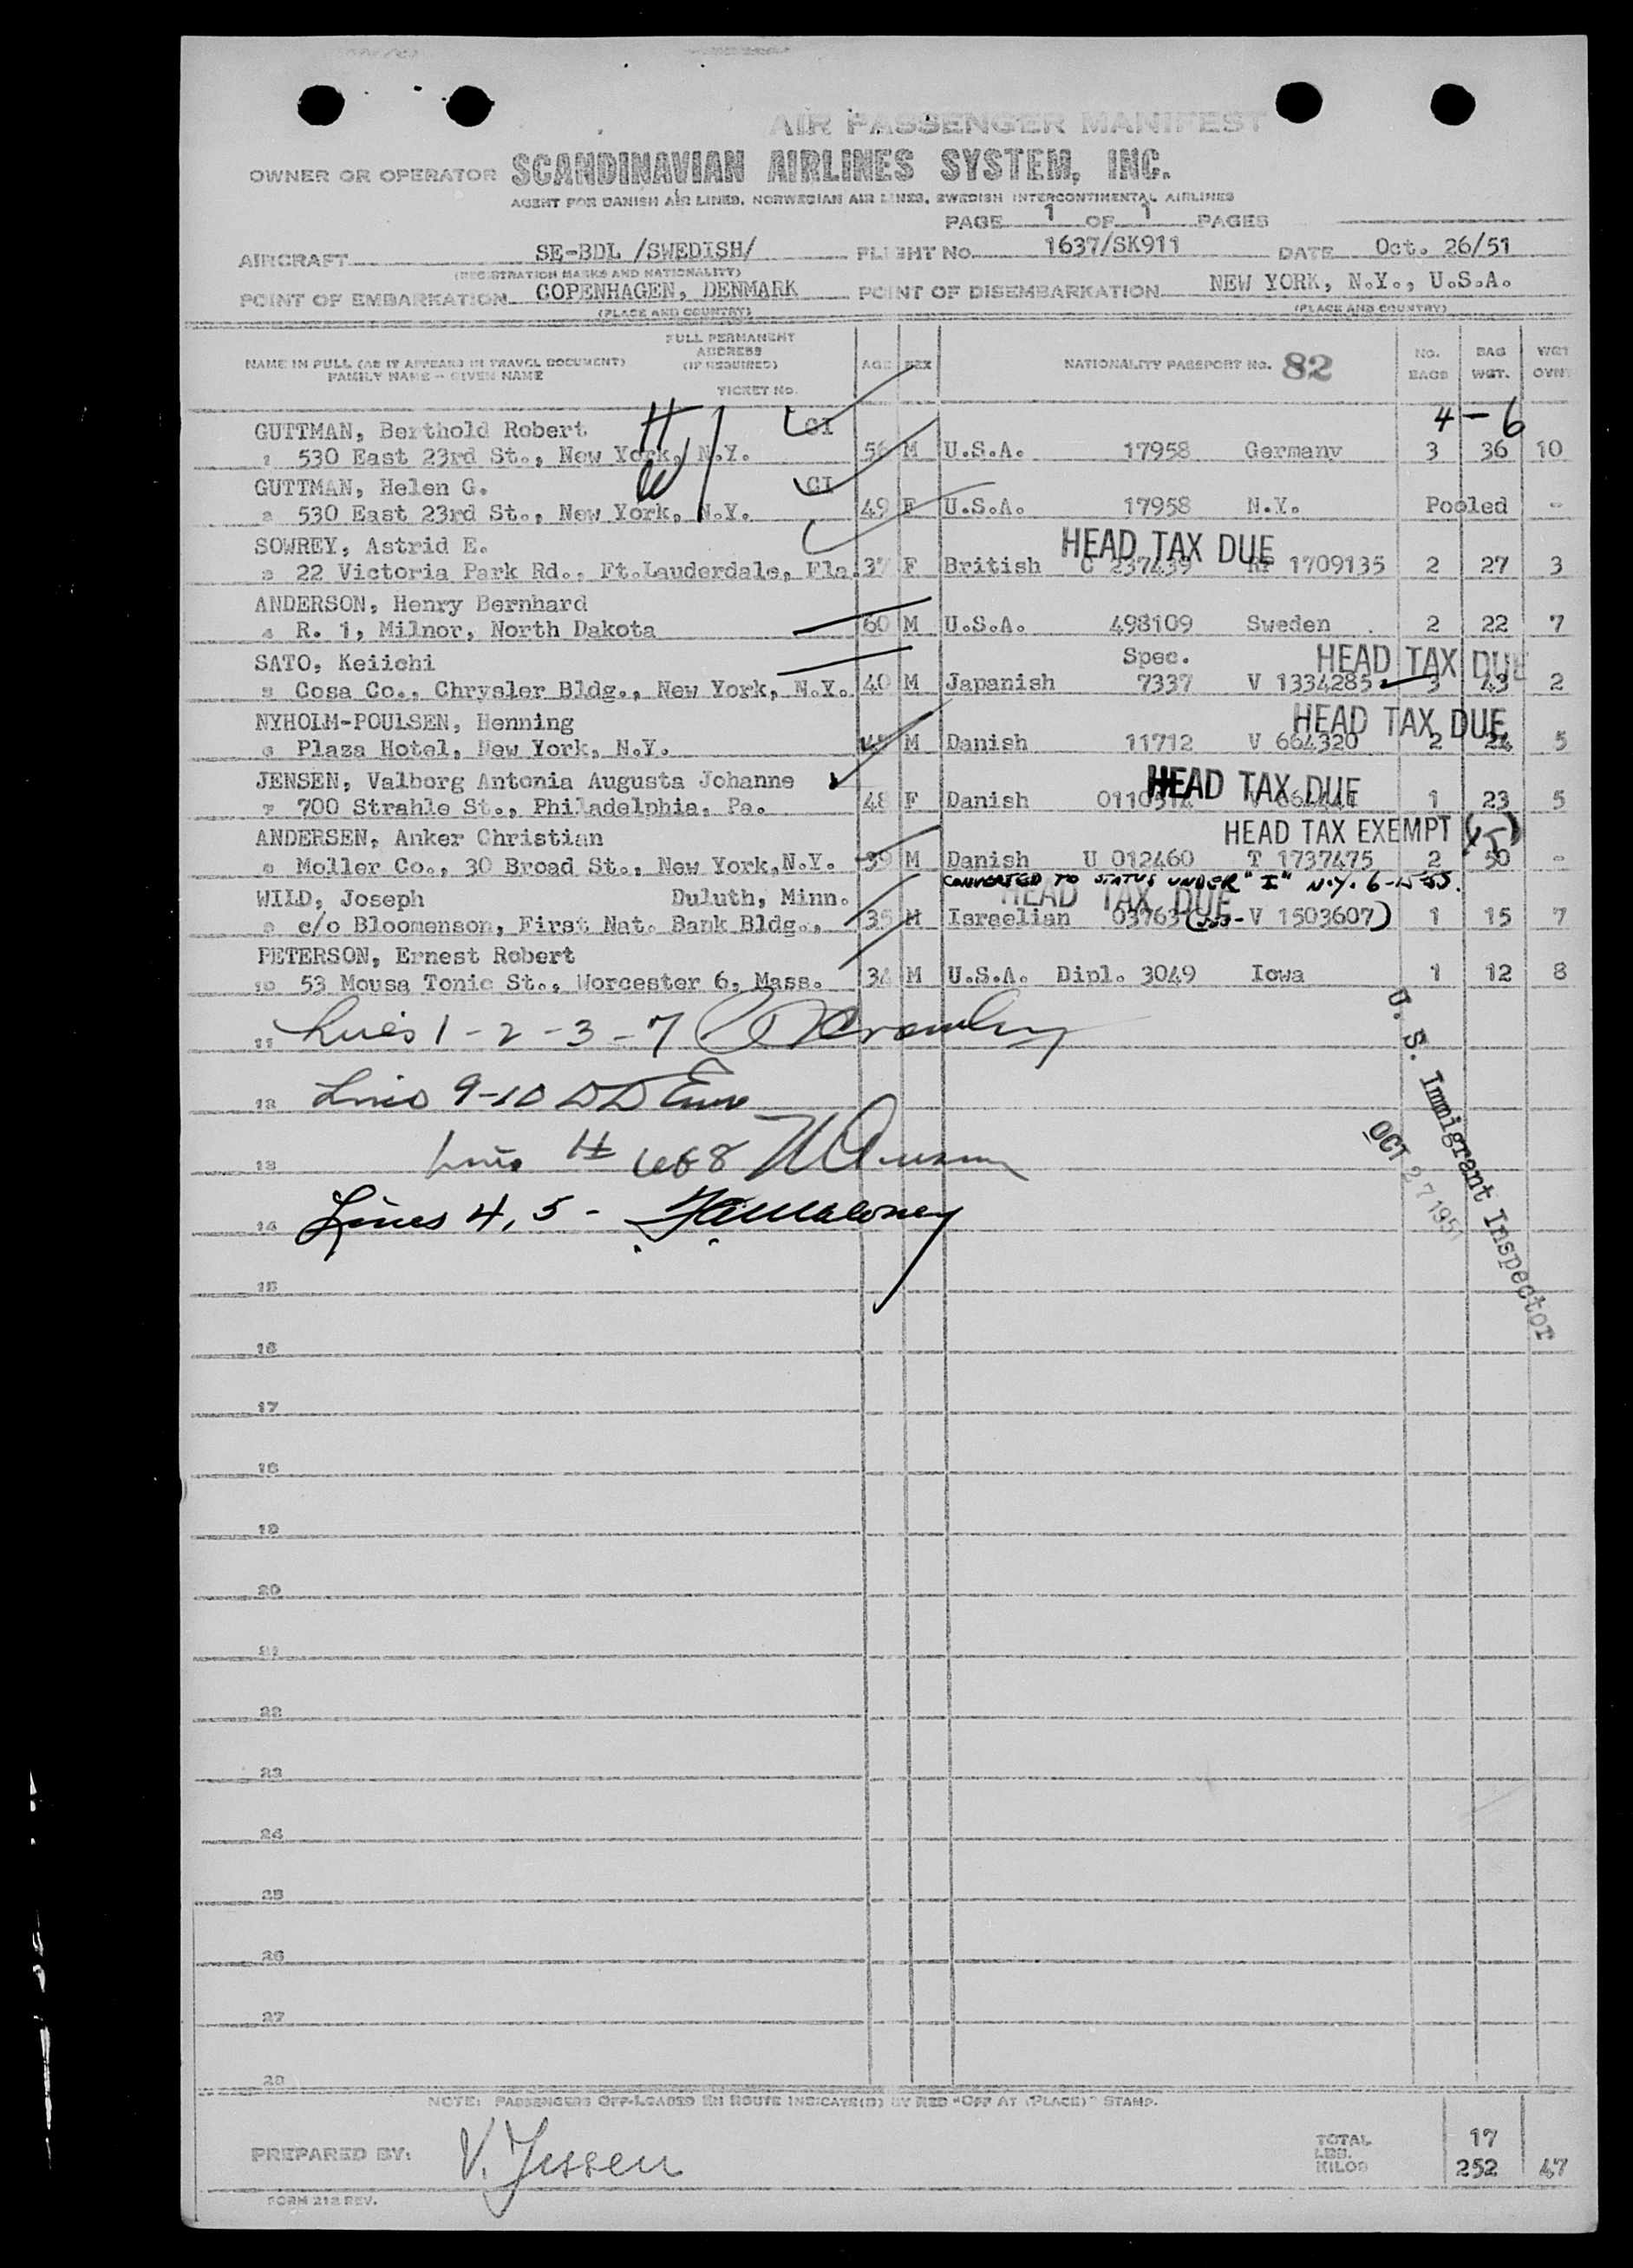 AIR PASSENGER MANIFEST
OWNER OR OPERATOR SCANDINAVIAN AIRLINES SYSTEM, INC.
AGENT FOR DANISH AIR LINES, NORWEGIAN AIR LINES, SWEDISH INTERCONTINENTAL AIRLINES
PAGE 1 OF 1 PAGES
AIRCRAFT SE-BDL /SWEDISH/ FLIGHT NO. 1637/SK911 DATE Oct. 26/51
(REGISTRATION MARKS AND NATIONALITY)
POINT OF EMBARKATION COPENHAGEN, DENMARK POINT OF DISEMBARKATION NEW YORK, N.Y., U.S.A.
(PLACE AND COUNTRY) (PLACE AND COUNTRY)
FULL PERMANENT
ADDRESS
(IF REQUIRED)
NAME IN FULL (AS IT APPEARS IN TRAVEL DOCUMENT)
FAMILY NAME - GIVEN NAME
TICKET NO.
AGE SEX NATIONALITY PASSPORT NO. 82 NO. BAGS BAG WGT. WGT OVN
4 - 6
GUTTMAN, Berthold Robert CI
1 530 East 23rd St., New York, N.Y. 56 M U.S.A. 17958 Germany 3 36 10
GUTTMAN, Helen G. CI
2 530 East 23rd St., New York, N.Y. 49 F U.S.A. 17958 N.Y. Pooled -
SOWREY, Astrid E. HEAD TAX DUE
3 22 Victoria Park Rd., Ft.Lauderdale, Fla. 37 F British C 237439 RP 1709135 2 27 3
ANDERSON, Henry Bernhard
4 R. 1, Milnor, North Dakota 60 M U.S.A. 498109 Sweden 2 22 7
SATO, Keiichi Spec. HEAD TAX DUE
5 Cosa Co., Chrysler Bldg., New York, N.Y. 40 M Japanish 7337 V 1334285 3 43 2
NYHOLM-POULSEN, Henning HEAD TAX DUE
6 Plaza Hotel, New York, N.Y. M Danish 11712 V 664320 2 24 5
JENSEN, Valborg Antonia Augusta Johanne HEAD TAX DUE
7 700 Strahle St., Philadelphia, Pa. 48 F Danish 1 23 5
ANDERSEN, Anker Christian HEAD TAX EXEMPT
8 Moller Co., 30 Broad St., New York,N.Y. 39 M Danish U 012460 T 1737475 2 50 -
CONVERTED TO STATUS UNDER "I" N.Y.
WILD, Joseph Duluth, Minn. HEAD TAX DUE
9 c/o Bloomenson, First Nat. Bank Bldg., 35 M Israelian 03763 V 1503607) 1 15 7
PETERSON, Ernest Robert
10 53 Mousa Tonic St., Worcester 6, Mass. 34 M U.S.A. Dipl. 3049 Iowa 1 12 8
11 Lines 1 - 2 - 3 - 7
12 Lines 9-10
13 Lines
14 Lines 4, 5 -
U. S. Immigrant Inspector
OCT 27 1951
15
16
17
18
19
20
21
22
23
24
25
26
27
28
NOTE: PASSENGERS OFF-LOADED EN ROUTE INDICATE(D) BY RED "OFF AT (PLACE)" STAMP.
PREPARED BY: V. Jessen
TOTAL 17
LBS.
KILOS 252 47
FORM 212 REV.